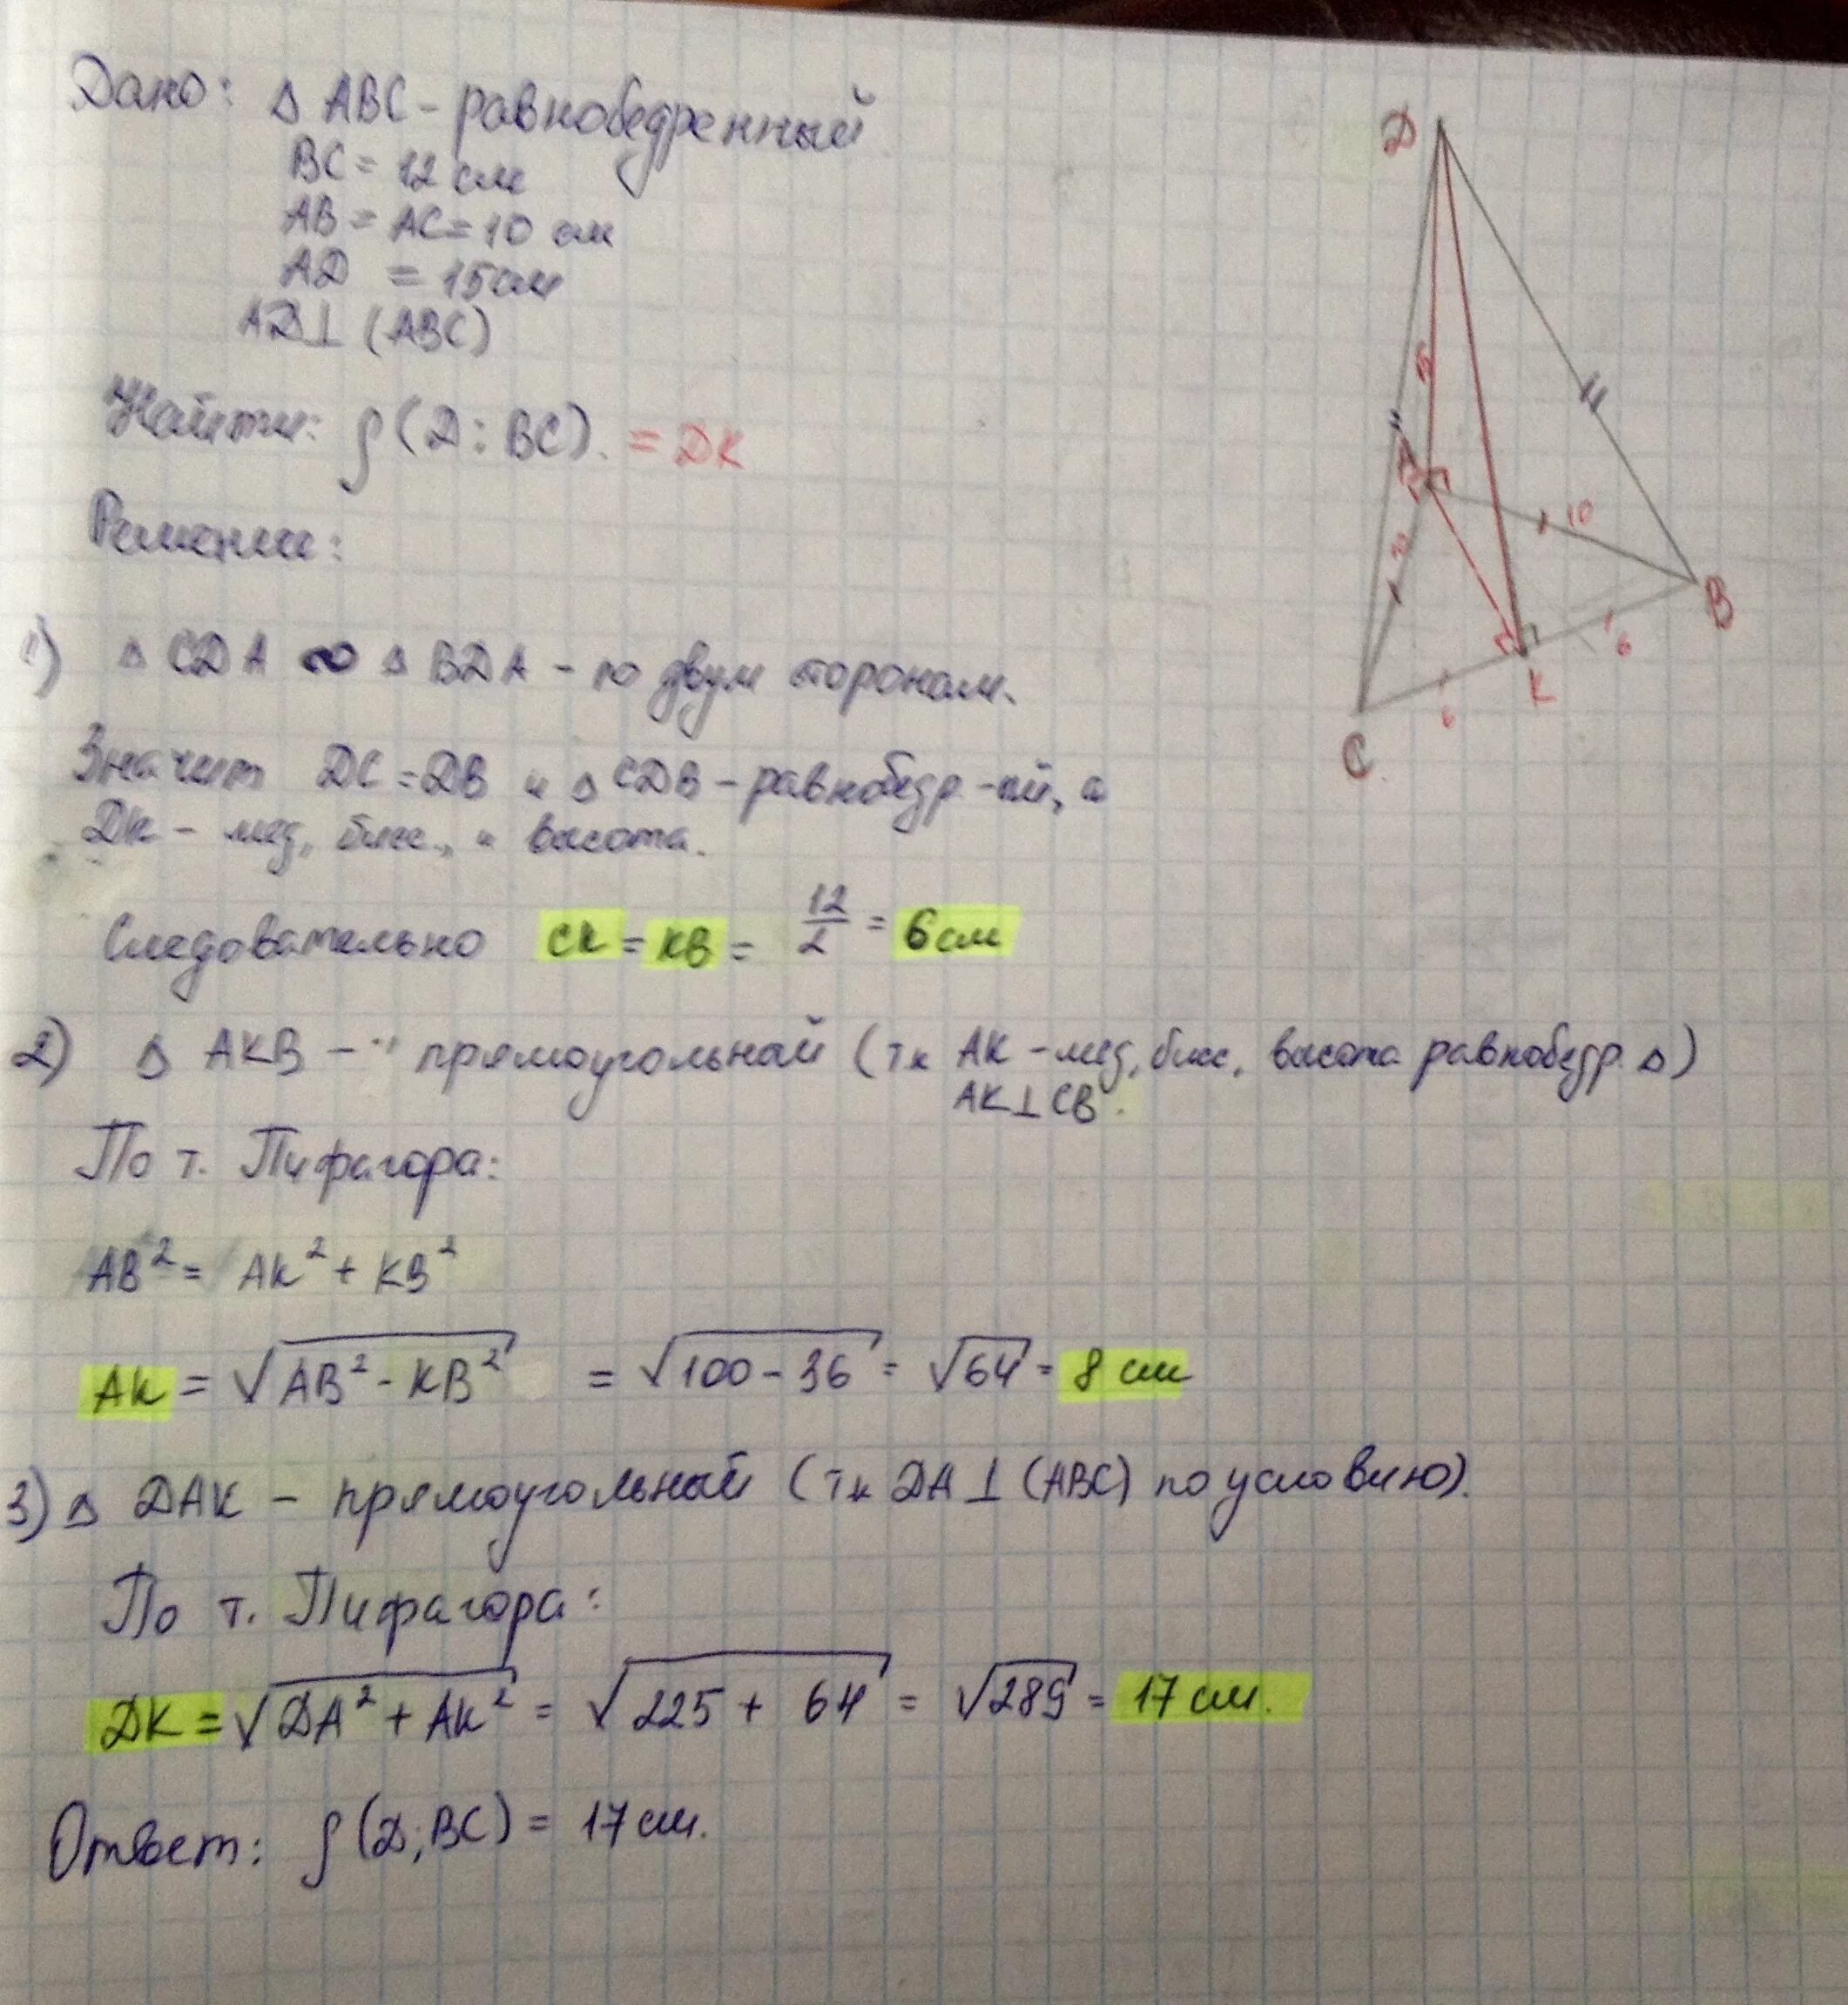 Дано: Δ ABC - равнобедренный
BC = 12 см
AB = AC = 10 см
AD = 15 см
AD ⊥ (ABC)
Найти: ρ(D; BC). = DK
Решение:
1) Δ CDA ∞ Δ BDA - по двум сторонам.
Значит DC = DB и Δ CDB - равнобедр-ый, а
DK - мед, бисс., и высота.
Следовательно CK = KB = 12/2 = 6 см
2) Δ AKB - прямоугольный (тк AK - мед, бисс, высота равнобедр. Δ)
AK ⊥ CB.
По т. Пифагора:
AB² = AK² + KB²
AK = √(AB² - KB²) = √(100 - 36) = √64 = 8 см
3) Δ DAK - прямоугольный (тк DA ⊥ (ABC) по условию).
По т. Пифагора:
DK = √(DA² + AK²) = √(225 + 64) = √289 = 17 см.
Ответ: ρ(D; BC) = 17 см.
D
15
A
10
10
B
6
K
6
C